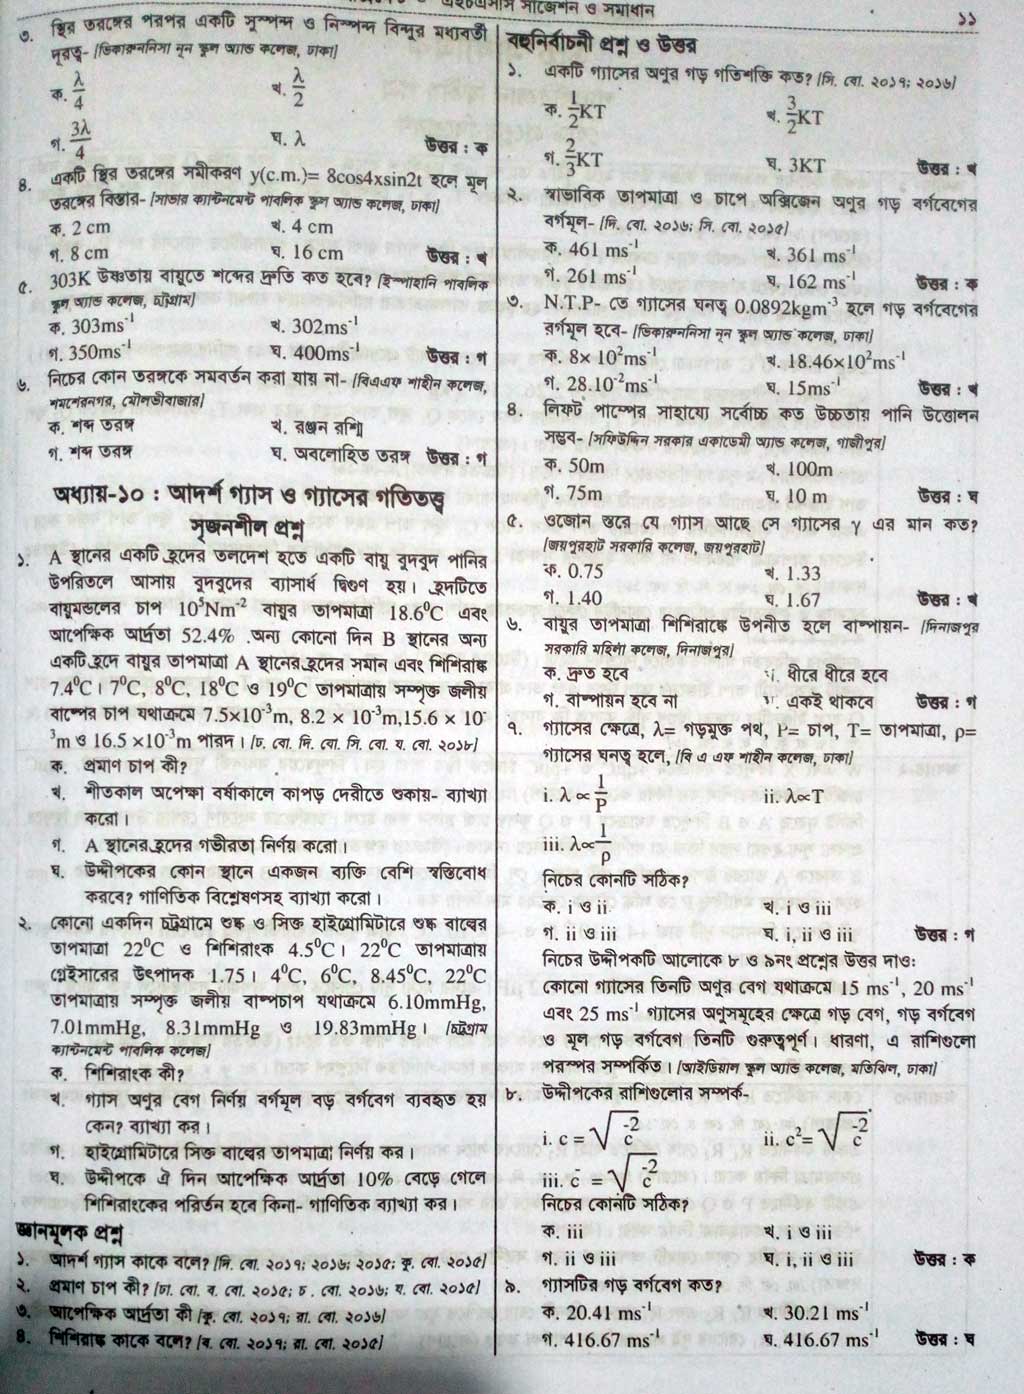 এইচএসসি সাজেশন ও সমাধান
১১
৩. স্থির তরঙ্গের পরপর একটি সুস্পন্দ ও নিস্পন্দ বিন্দুর মধ্যবর্তী
দূরত্ব- [ভিকারুননিসা নূন স্কুল অ্যান্ড কলেজ, ঢাকা]
ক. λ/4 খ. λ/2
গ. 3λ/4 ঘ. λ উত্তর : ক
৪. একটি স্থির তরঙ্গের সমীকরণ y(c.m.)= 8cos4xsin2t হলে মূল
তরঙ্গের বিস্তার- [সাভার ক্যান্টনমেন্ট পাবলিক স্কুল অ্যান্ড কলেজ, ঢাকা]
ক. 2 cm খ. 4 cm
গ. 8 cm ঘ. 16 cm উত্তর : খ
৫. 303K উষ্ণতায় বায়ুতে শব্দের দ্রুতি কত হবে? [ইস্পাহানি পাবলিক
স্কুল অ্যান্ড কলেজ, চট্টগ্রাম]
ক. 303ms⁻¹ খ. 302ms⁻¹
গ. 350ms⁻¹ ঘ. 400ms⁻¹ উত্তর : গ
৬. নিচের কোন তরঙ্গকে সমবর্তন করা যায় না- [বিএএফ শাহীন কলেজ,
শমশেরনগর, মৌলভীবাজার]
ক. শব্দ তরঙ্গ খ. রঞ্জন রশ্মি
গ. শব্দ তরঙ্গ ঘ. অবলোহিত তরঙ্গ উত্তর : গ
অধ্যায়-১০ : আদর্শ গ্যাস ও গ্যাসের গতিতত্ত্ব
সৃজনশীল প্রশ্ন
১. A স্থানের একটি হ্রদের তলদেশ হতে একটি বায়ু বুদবুদ পানির
উপরিতলে আসায় বুদবুদের ব্যাসার্ধ দ্বিগুণ হয়। হ্রদটিতে
বায়ুমন্ডলের চাপ 10⁵Nm⁻² বায়ুর তাপমাত্রা 18.6⁰C এবং
আপেক্ষিক আর্দ্রতা 52.4% .অন্য কোনো দিন B স্থানের অন্য
একটি হ্রদে বায়ুর তাপমাত্রা A স্থানের হ্রদের সমান এবং শিশিরাঙ্ক
7.4⁰C। 7⁰C, 8⁰C, 18⁰C ও 19⁰C তাপমাত্রায় সম্পৃক্ত জলীয়
বাষ্পের চাপ যথাক্রমে 7.5×10⁻³m, 8.2 × 10⁻³m,15.6 × 10⁻
³m ও 16.5 ×10⁻³m পারদ। [ঢ. বো. দি. বো. সি. বো. য. বো. ২০১৮]
ক. প্রমাণ চাপ কী?
খ. শীতকাল অপেক্ষা বর্ষাকালে কাপড় দেরীতে শুকায়- ব্যাখ্যা
করো।
গ. A স্থানের হ্রদের গভীরতা নির্ণয় করো।
ঘ. উদ্দীপকের কোন স্থানে একজন ব্যক্তি বেশি স্বস্তিবোধ
করবে? গাণিতিক বিশ্লেষণসহ ব্যাখ্যা করো।
২. কোনো একদিন চট্টগ্রামে শুষ্ক ও সিক্ত হাইগ্রোমিটারে শুষ্ক বাল্বের
তাপমাত্রা 22⁰C ও শিশিরাংক 4.5⁰C। 22⁰C তাপমাত্রায়
গ্লেইসারের উৎপাদক 1.75। 4⁰C, 6⁰C, 8.45⁰C, 22⁰C
তাপমাত্রায় সম্পৃক্ত জলীয় বাষ্পচাপ যথাক্রমে 6.10mmHg,
7.01mmHg, 8.31mmHg ও 19.83mmHg। [চট্টগ্রাম
ক্যান্টনমেন্ট পাবলিক কলেজ]
ক. শিশিরাংক কী?
খ. গ্যাস অণুর বেগ নির্ণয় বর্গমূল বড় বর্গবেগ ব্যবহৃত হয়
কেন? ব্যাখ্যা কর।
গ. হাইগ্রোমিটারে সিক্ত বাল্বের তাপমাত্রা নির্ণয় কর।
ঘ. উদ্দীপকে ঐ দিন আপেক্ষিক আর্দ্রতা 10% বেড়ে গেলে
শিশিরাংকের পরির্তন হবে কিনা- গাণিতিক ব্যাখ্যা কর।
জ্ঞানমূলক প্রশ্ন
১. আদর্শ গ্যাস কাকে বলে? [সি. বো. ২০১৭; ২০১৬; ২০১৫; কু. বো. ২০১৫]
২. প্রমাণ চাপ কী? [ঢা. বো. ব. বো. ২০১৫; চ. বো. ২০১৬; য. বো. ২০১৫]
৩. আপেক্ষিক আর্দ্রতা কী [কু. বো. ২০১৭; রা. বো. ২০১৬]
৪. শিশিরাঙ্ক কাকে বলে? [ব. বো. ২০১৭; রা. বো. ২০১৫]
বহুনির্বাচনী প্রশ্ন ও উত্তর
১. একটি গ্যাসের অণুর গড় গতিশক্তি কত? [সি. বো. ২০১৭; ২০১৬]
ক. 1/2 KT খ. 3/2 KT
গ. 2/3 KT ঘ. 3KT উত্তর : খ
২. স্বাভাবিক তাপমাত্রা ও চাপে অক্সিজেন অণুর গড় বর্গবেগের
বর্গমূল- [দি. বো. ২০১৬; সি. বো. ২০১৫]
ক. 461 ms⁻¹ খ. 361 ms⁻¹
গ. 261 ms⁻¹ ঘ. 162 ms⁻¹ উত্তর : ক
৩. N.T.P- তে গ্যাসের ঘনত্ব 0.0892kgm⁻³ হলে গড় বর্গবেগের
বর্গমূল হবে- [ভিকারুননিসা নূন স্কুল অ্যান্ড কলেজ, ঢাকা]
ক. 8× 10²ms⁻¹ খ. 18.46×10²ms⁻¹
গ. 28.10⁻²ms⁻¹ ঘ. 15ms⁻¹ উত্তর : খ
৪. লিফট পাম্পের সাহায্যে সর্বোচ্চ কত উচ্চতায় পানি উত্তোলন
সম্ভব- [সফিউদ্দিন সরকার একাডেমী অ্যান্ড কলেজ, গাজীপুর]
ক. 50m খ. 100m
গ. 75m ঘ. 10 m উত্তর : ঘ
৫. ওজোন স্তরে যে গ্যাস আছে সে গ্যাসের γ এর মান কত?
[জয়পুরহাট সরকারি কলেজ, জয়পুরহাট]
ক. 0.75 খ. 1.33
গ. 1.40 ঘ. 1.67 উত্তর : খ
৬. বায়ুর তাপমাত্রা শিশিরাঙ্কে উপনীত হলে বাষ্পায়ন- [দিনাজপুর
সরকারি মহিলা কলেজ, দিনাজপুর]
ক. দ্রুত হবে ধীরে ধীরে হবে
গ. বাষ্পায়ন হবে না একই থাকবে উত্তর : গ
৭. গ্যাসের ক্ষেত্রে, λ= গড়মুক্ত পথ, P= চাপ, T= তাপমাত্রা, ρ=
গ্যাসের ঘনত্ব হলে, [বি এ এফ শাহীন কলেজ, ঢাকা]
i. λ ∝ 1/P ii. λ∝T
iii. λ∝ 1/ρ
নিচের কোনটি সঠিক?
ক. i ও ii খ. i ও iii
গ. ii ও iii ঘ. i, ii ও iii উত্তর : গ
নিচের উদ্দীপকটি আলোকে ৮ ও ৯নং প্রশ্নের উত্তর দাও:
কোনো গ্যাসের তিনটি অণুর বেগ যথাক্রমে 15 ms⁻¹, 20 ms⁻¹
এবং 25 ms⁻¹ গ্যাসের অণুসমূহের ক্ষেত্রে গড় বেগ, গড় বর্গবেগ
ও মূল গড় বর্গবেগ তিনটি গুরুত্বপূর্ণ। ধারণা, এ রাশিগুলো
পরস্পর সম্পর্কিত। [আইডিয়াল স্কুল অ্যান্ড কলেজ, মতিঝিল, ঢাকা]
৮. উদ্দীপকের রাশিগুলোর সম্পর্ক-
i. c = √c̄² ii. c² = √c̄²
iii. c̄ = √c̄²
নিচের কোনটি সঠিক?
ক. iii খ. i ও iii
গ. ii ও iii ঘ. i, ii ও iii উত্তর : ক
৯. গ্যাসটির গড় বর্গবেগ কত?
ক. 20.41 ms⁻¹ খ. 30.21 ms⁻¹
গ. 416.67 ms⁻¹ ঘ. 416.67 ms⁻¹ উত্তর : ঘ